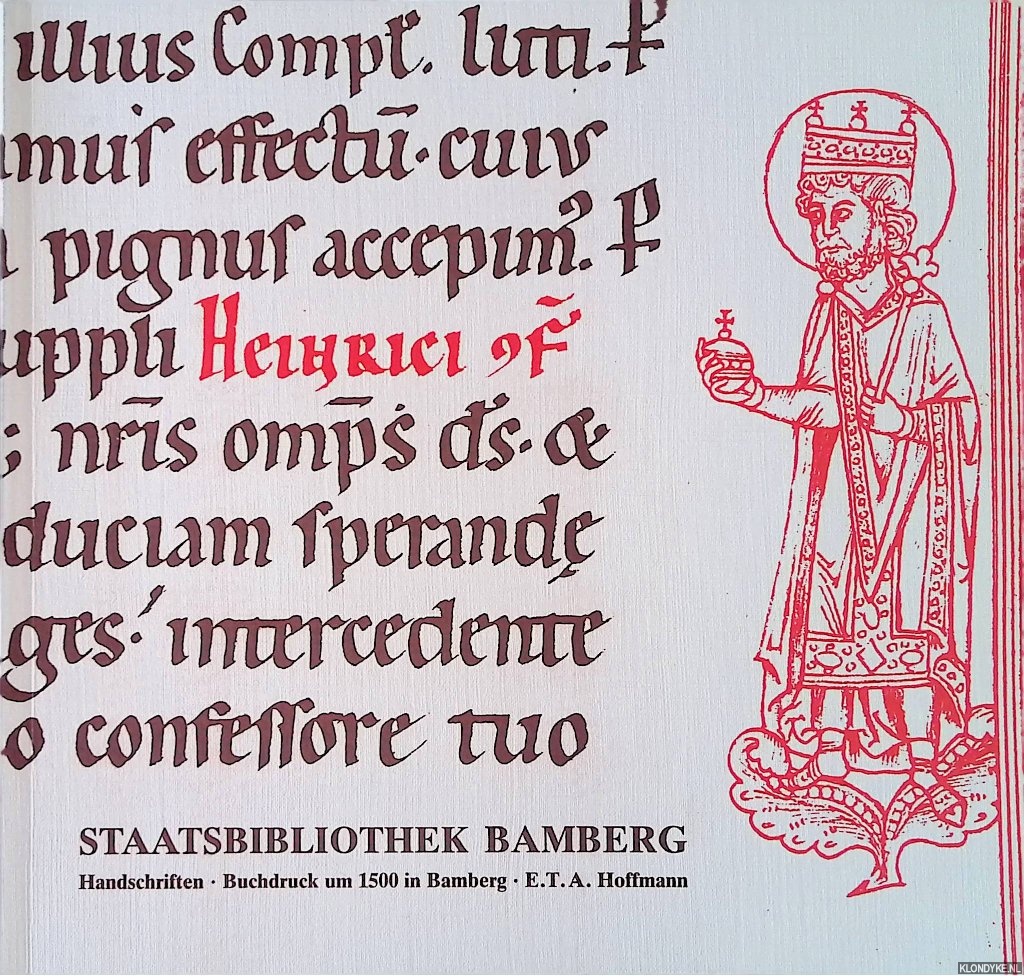 illius Compl̄. luti. P
amuſ effectū. cuius
pignuſ accepim᷒. P
uppli Heinrici ꝯf̄
; nr̄is omp̄s d̄s. &
duciam ſperandę
ges. intercedente
o confeſſore tuo
STAATSBIBLIOTHEK BAMBERG
Handschriften · Buchdruck um 1500 in Bamberg · E.T.A. Hoffmann
KLONDYKE.NL